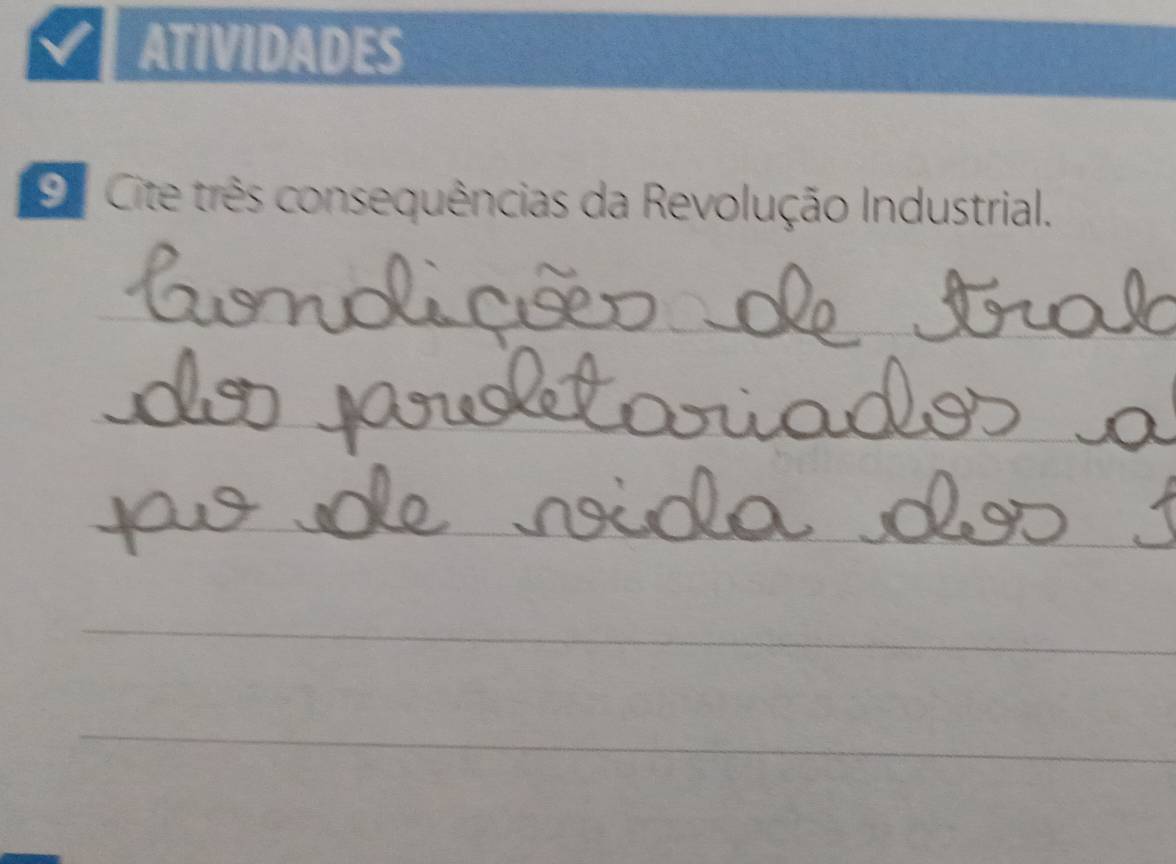 ATIVIDADES
9 Cite três consequências da Revolução Industrial.
Condições de trab
dos proletariados a
po de vida dos